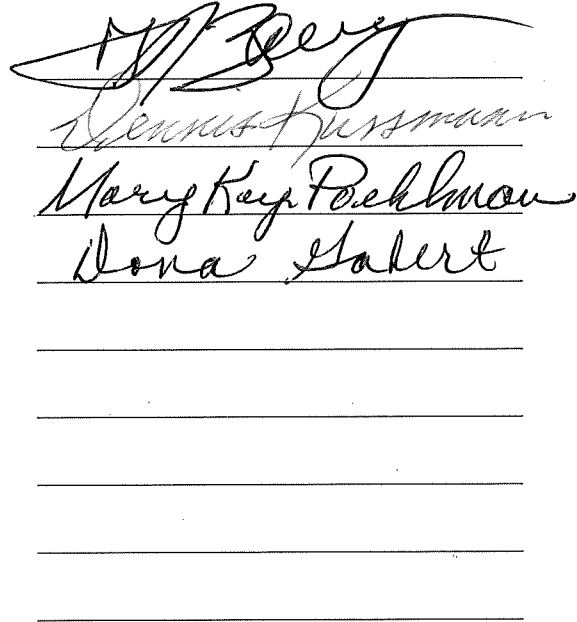 Dennis Kussmann
Mary Kay Poehlman
Dona Gabert